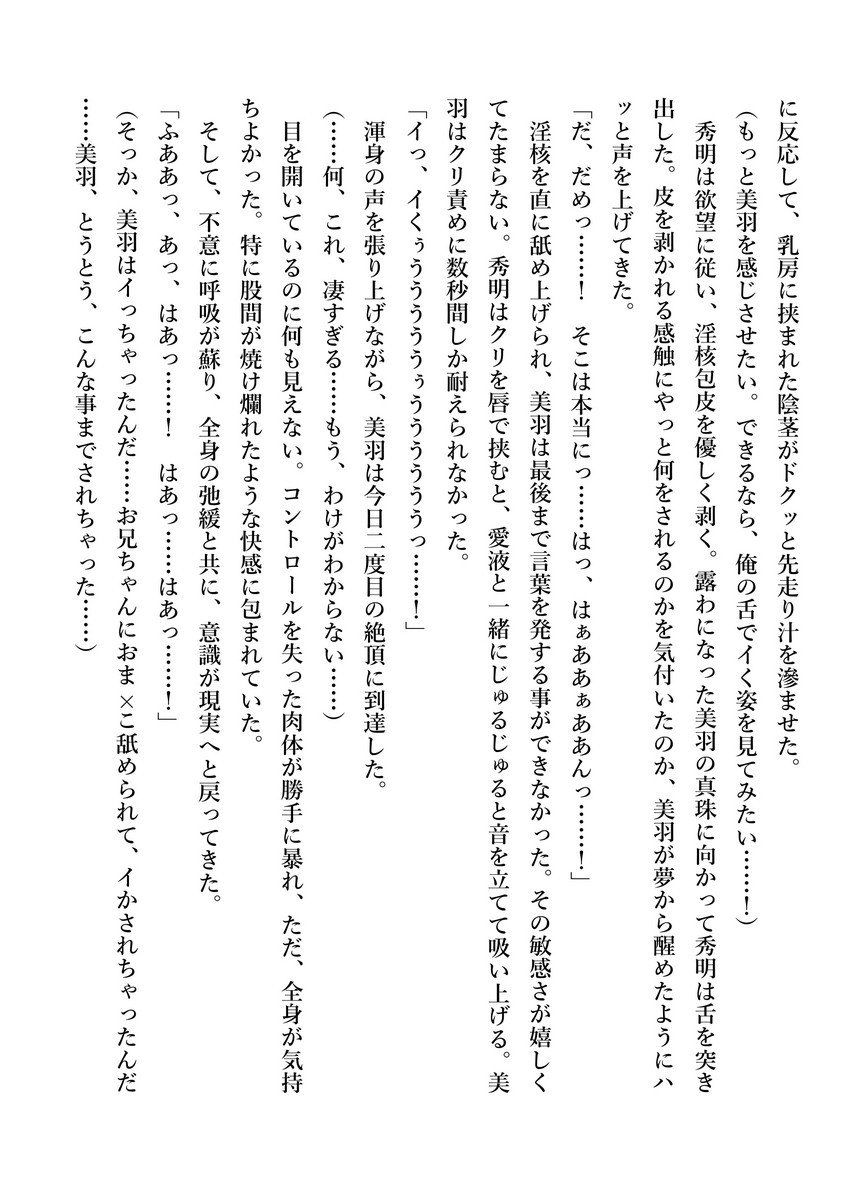 に反応して、乳房に挟まれた陰茎がドクッと先走り汁を滲ませた。
(もっと美羽を感じさせたい。できるなら、俺の舌でイく姿を見てみたい……!)
　秀明は欲望に従い、淫核包皮を優しく剥く。露わになった美羽の真珠に向かって秀明は舌を突き
出した。皮を剥かれる感触にやっと何をされるのかを気付いたのか、美羽が夢から醒めたようにハ
ッと声を上げてきた。
「だ、だめっ……!　そこは本当にっ……はっ、はぁああぁああんっ……!」
　淫核を直に舐め上げられ、美羽は最後まで言葉を発する事ができなかった。その敏感さが嬉しく
てたまらない。秀明はクリを唇で挟むと、愛液と一緒にじゅるじゅると音を立てて吸い上げる。美
羽はクリ責めに数秒間しか耐えられなかった。
「イっ、イくぅうううううぅううううううっ……!」
　渾身の声を張り上げながら、美羽は今日二度目の絶頂に到達した。
(……何、これ、凄すぎる……もう、わけがわからない……)
　目を開いているのに何も見えない。コントロールを失った肉体が勝手に暴れ、ただ、全身が気持
ちよかった。特に股間が焼け爛れたような快感に包まれていた。
　そして、不意に呼吸が蘇り、全身の弛緩と共に、意識が現実へと戻ってきた。
「ふああっ、あっ、はあっ……!　はあっ……はあっ……!」
(そっか、美羽はイっちゃったんだ……お兄ちゃんにおま×こ舐められて、イかされちゃったんだ
……美羽、とうとう、こんな事までされちゃった……)